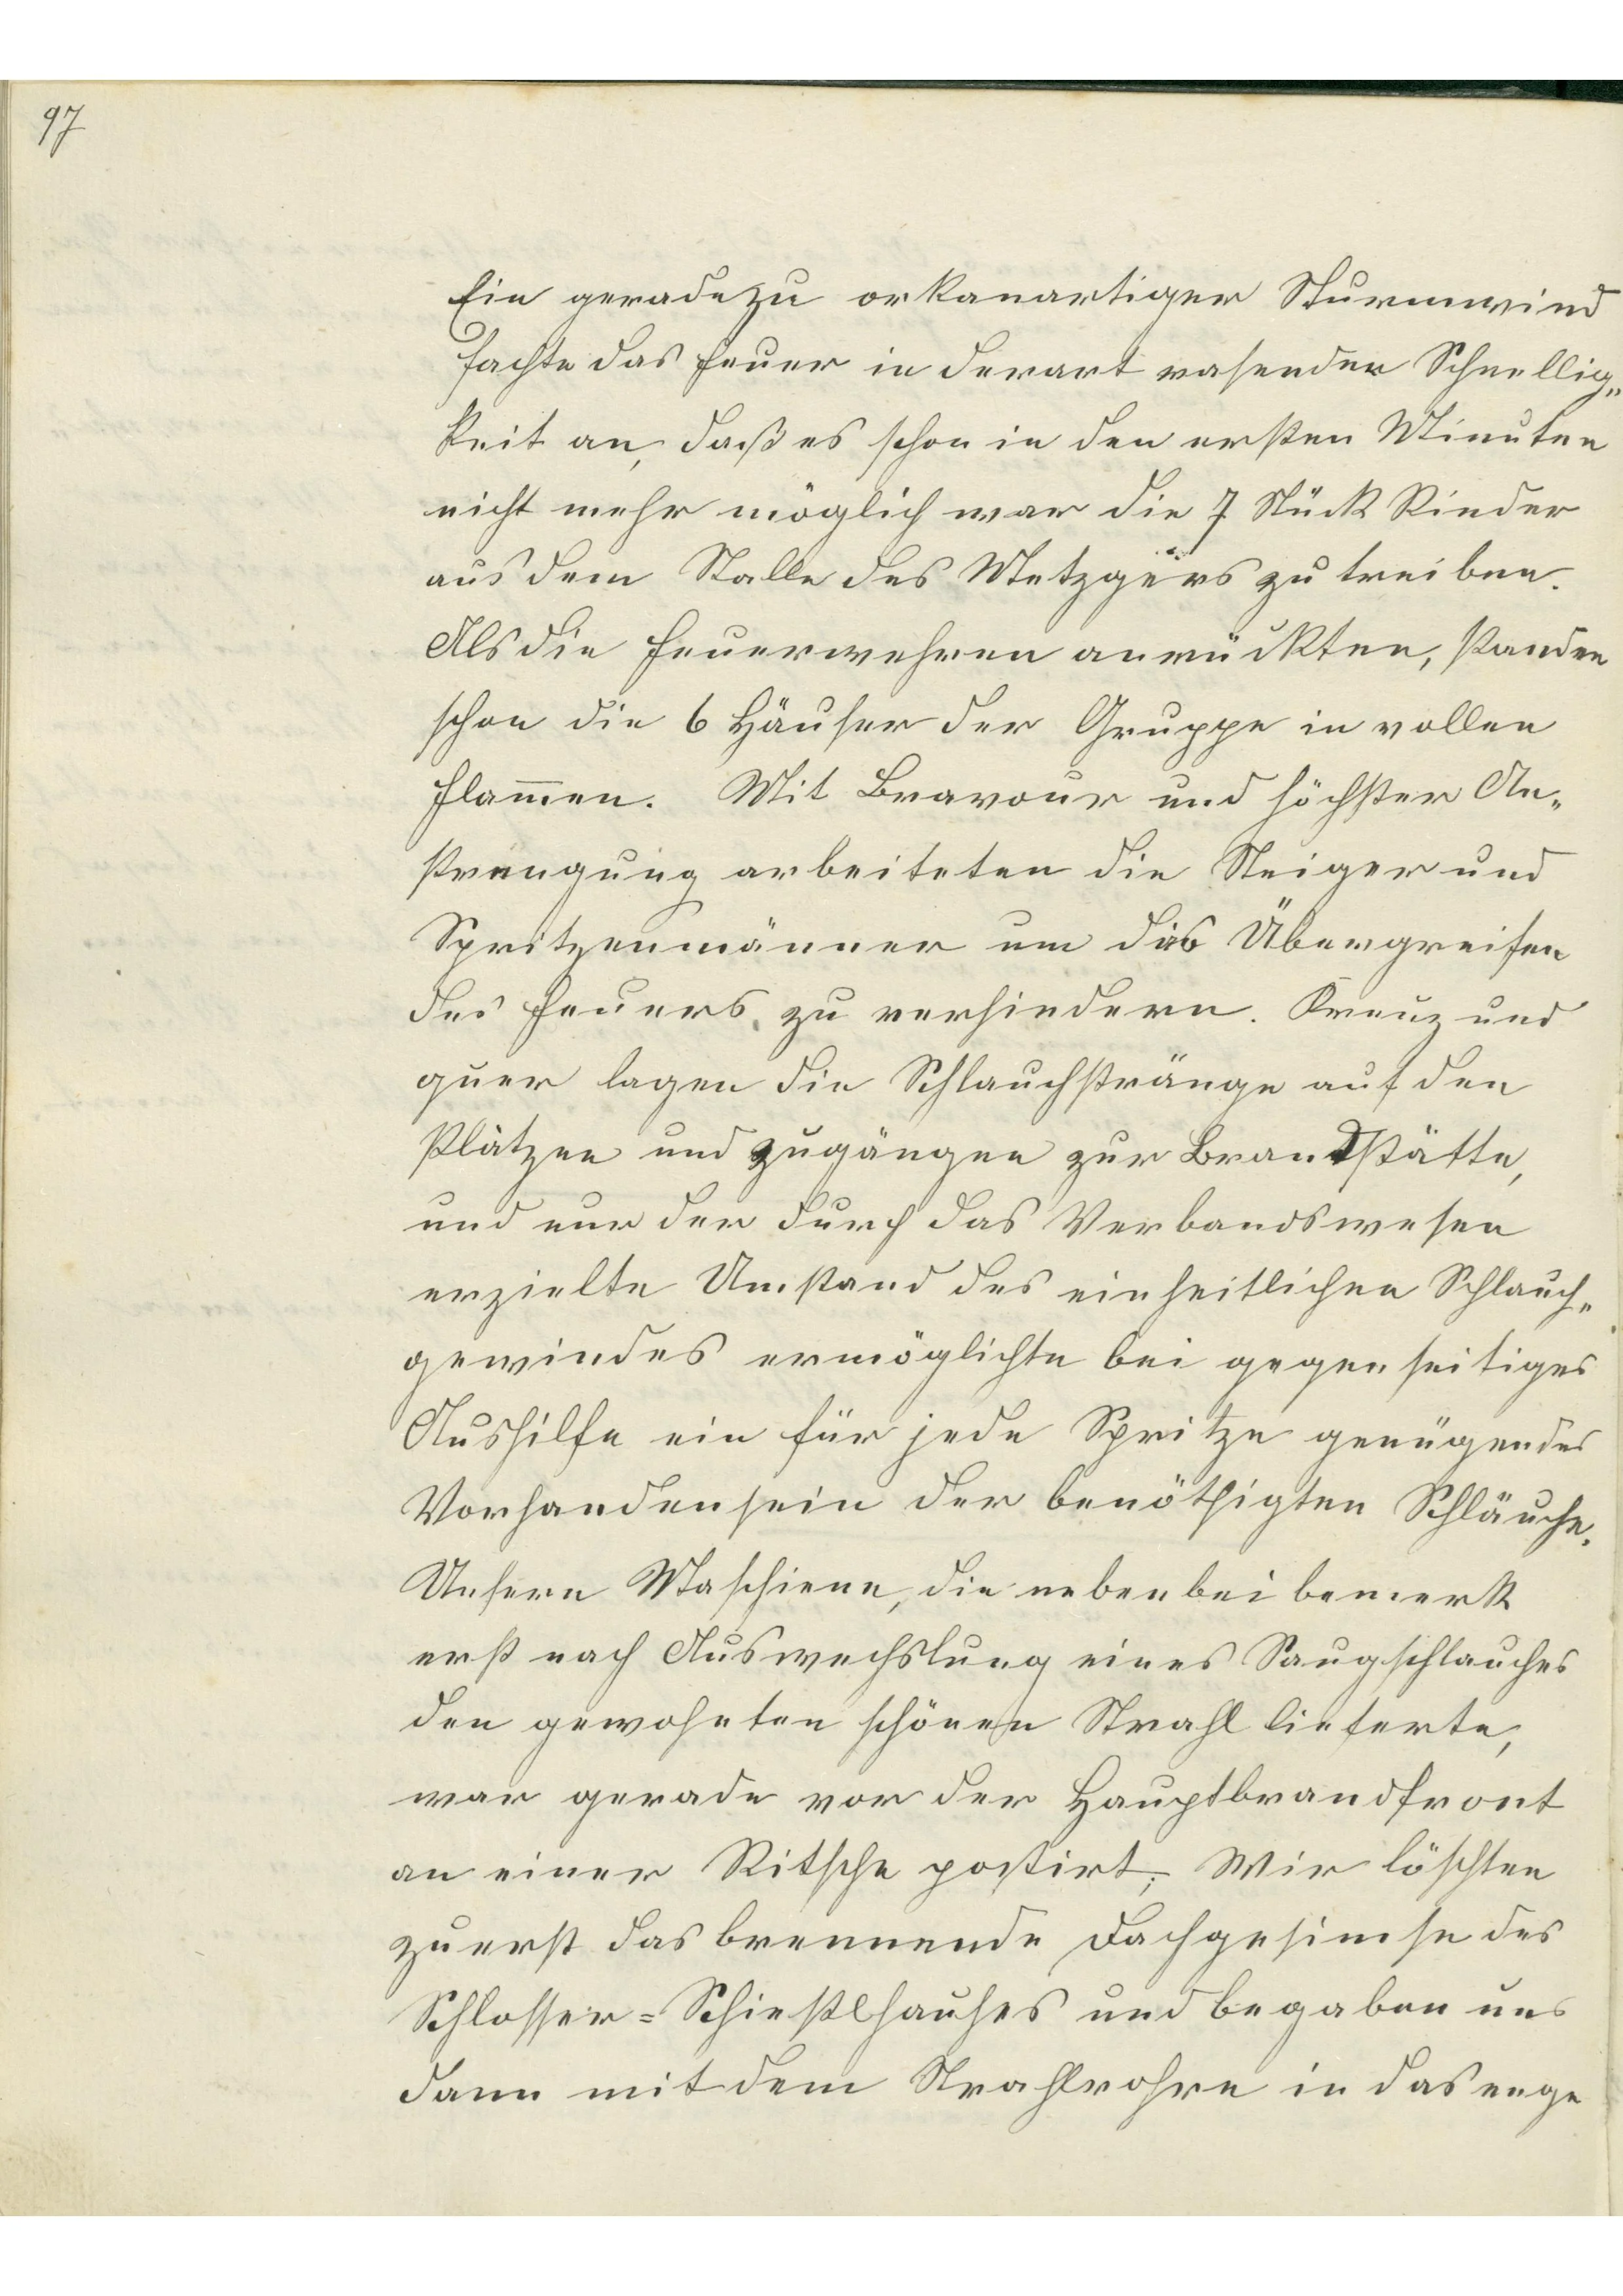 97
Ein geradezu orkanartiger Sturmwind
fachte das Feuer in derart rasender Schnellig-
keit an, daß es schon in den ersten Minuten
nicht mehr möglich war die 7 Stück Rinder
aus dem Stalle des Metzgers zu treiben.
Als die Feuerwehren anrückten, standen
schon die 6 Häuser der Gruppe in vollen
Flam̅en. Mit Bravour und höchster An-
strengung arbeiteten die Steiger und
Spritzenmänner um das Übergreifen
des Feuers zu verhindern. Kreuz und
quer lagen die Schlauchstränge auf den
Plätzen und Zugängen zur Brandstätte,
und nur der durch das Verbandswesen
erzielte Umstand des einheitlichen Schlauch-
gewindes ermöglichte bei gegenseitiges
Aushilfe ein für jede Spritze genügendes
Vorhandensein der benöthigten Schläuche.
Unsere Maschiene, die nebenbei bemerk
erst nach Auswechslung eines Saugschlauches
den gewohnten schönen Strahl lieferte,
war gerade vor der Hauptbrandfront
an einer Ritsche postirt; Wir löschten
zuerst das brennende Dachgesimse des
Schlosser=Schiestlhauses und begaben uns
dann mit dem Strahlrohre in das enge